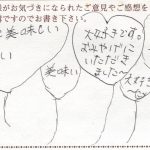 様がお気づきになられたご意見やご感想を
ですのでお書き下さい。
美味しい
大好きです。
おみやげに
いただき
ました〜
美味しい
大好き